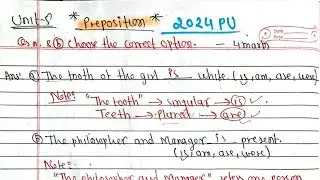 Unit-8 * Preposition * 2024 PU
Q.n. 8 (b) Choose the correct option. - 4 mark
Ans: a) The tooth of the girl is white. (is, am, are, were)
Note:- "The tooth" → singular → (is) ✓.
Teeth → Plural → (are) ✓.
(b) The philosopher and Manager is present.
(is, am, are, were)
Note:-
"The philosopher and Manager" refer one person